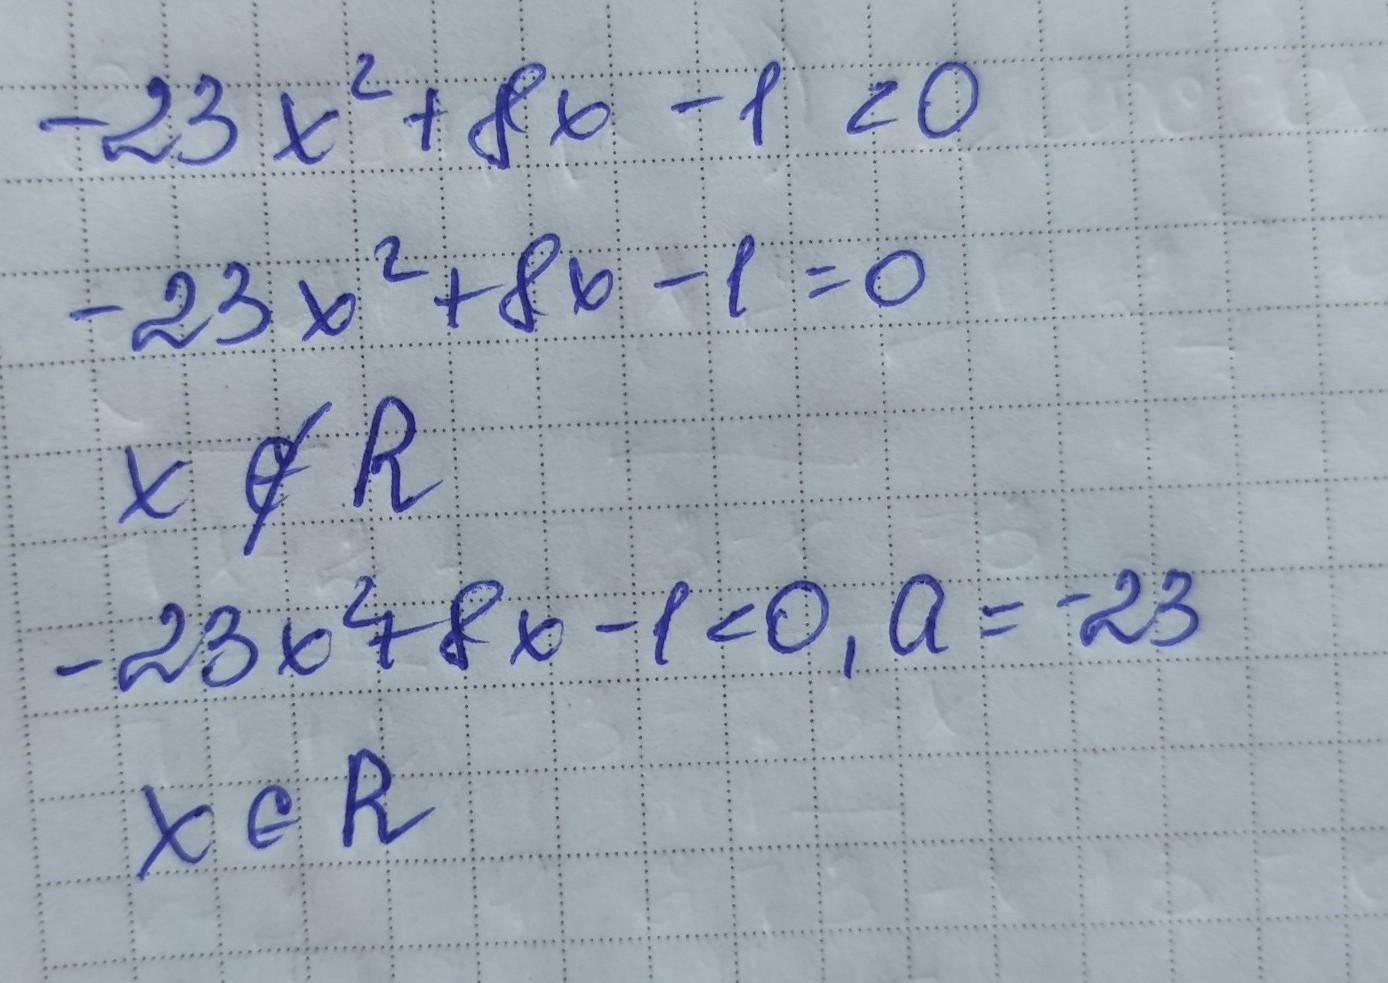 -23x²+8x-1<0
-23x²+8x-1=0
x∉R
-23x²+8x-1<0, a=-23
x∈R